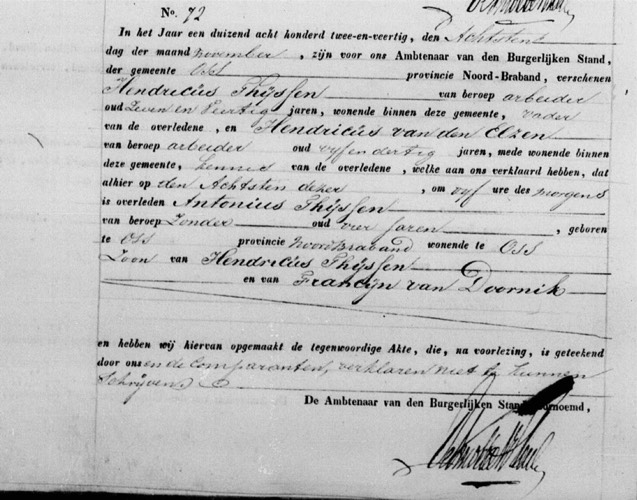 No. 72
In het Jaar een duizend acht honderd twee-en-veertig, den Achtsten
dag der maand november, zijn voor ons Ambtenaar van den Burgerlijken Stand,
der gemeente Oss provincie Noord-Braband, verschenen
Hendricus Thijssen van beroep arbeider
oud Zeven en Veertig jaren, wonende binnen deze gemeente, vader
van de overledene, en Hendricus van den Elzen
van beroep arbeider oud vyf en dertig jaren, mede wonende binnen
deze gemeente, kennis van de overledene, welke aan ons verklaard hebben, dat
alhier op den Achtsten dezer, om vyf ure des morgens
is overleden Antonius Thijssen
van beroep Zonder oud vier jaren, geboren
te Oss provincie Noordbraband wonende te Oss
Zoon van Hendricus Thijssen
en van Francijn van Doornik
en hebben wij hiervan opgemaakt de tegenwoordige Akte, die, na voorlezing, is geteekend
door ons en de Comparanten, verklaren niet te kunnen
schrijven.
De Ambtenaar van den Burgerlijken Stand